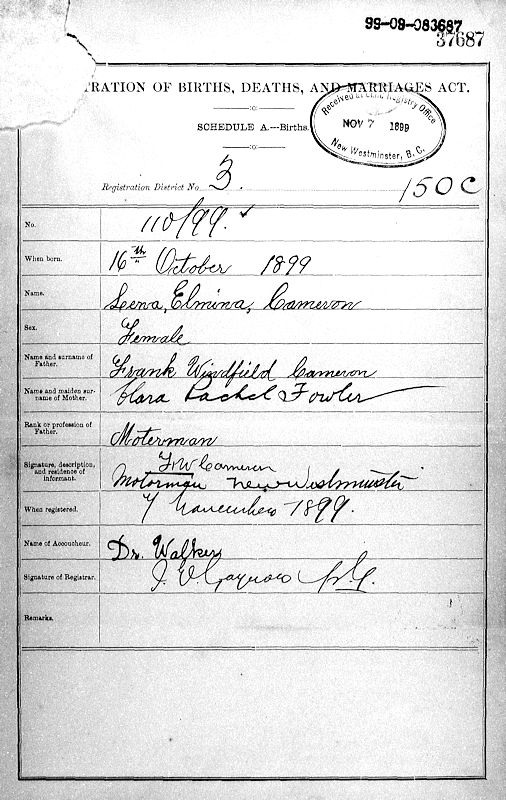 99-09-083687
37687
TRATION OF BIRTHS, DEATHS, AND MARRIAGES ACT.
SCHEDULE A.—Births.
Received at Registry Office
NOV 7 1899
New Westminster, B. C.
Registration District No. 3.
150C
No. 110/99. ✓
When born. 16th October 1899
Name. Leena, Elmina, Cameron
Sex. Female
Name and surname of Father. Frank Windfield Cameron
Name and maiden surname of Mother. Clara Rachel Fowler
Rank or profession of Father. Moterman
Signature, description, and residence of informant. F W Cameron
Motorman New Westminster
When registered. 7 November 1899.
Name of Accoucheur. Dr. Walker
Signature of Registrar.
Remarks.